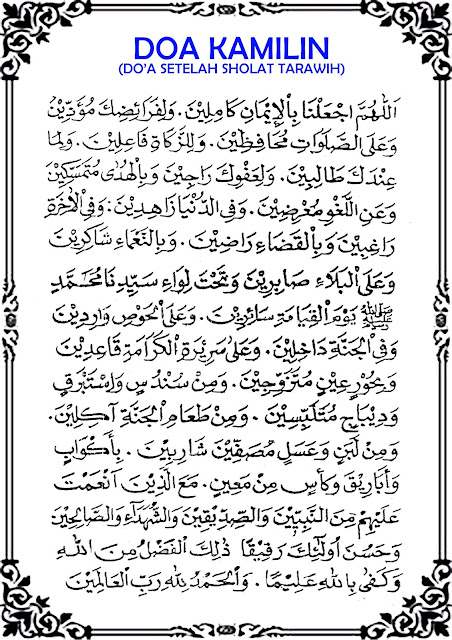 DOA KAMILIN
(DO'A SETELAH SHOLAT TARAWIH)
اَللّٰهُمَّ اجْعَلْنَا بِالْإِيْمَانِ كَامِلِيْنَ. وَلِفَرَائِضِكَ مُؤَدِّيْنَ
وَعَلَى الصَّلَوَاتِ مُحَافِظِيْنَ. وَلِلزَّكَاةِ فَاعِلِيْنَ. وَلِمَا
عِنْدَكَ طَالِبِيْنَ. وَلِعَفْوِكَ رَاجِيْنَ وَبِالْهُدٰى مُتَمَسِّكِيْنَ
وَعَنِ اللَّغْوِ مُعْرِضِيْنَ. وَفِي الدُّنْيَا زَاهِدِيْنَ. وَفِي الْاٰخِرَةِ
رَاغِبِيْنَ وَبِالْقَضَاءِ رَاضِيْنَ. وَبِالنَّعْمَاءِ شَاكِرِيْنَ
وَعَلَى الْبَلَاءِ صَابِرِيْنَ وَتَحْتَ لِوَاءِ سَيِّدِنَا مُحَمَّدٍ
ﷺ يَوْمَ الْقِيَامَةِ سَائِرِيْنَ. وَعَلَى الْحَوْضِ وَارِدِيْنَ
وَفِي الْجَنَّةِ دَاخِلِيْنَ. وَعَلٰى سَرِيْرَةِ الْكَرَامَةِ قَاعِدِيْنَ
وَبِحُوْرٍ عِيْنٍ مُتَزَوِّجِيْنَ. وَمِنْ سُنْدُسٍ وَاِسْتَبْرَقٍ
وَدِيْبَاجٍ مُتَلَبِّسِيْنَ. وَمِنْ طَعَامِ الْجَنَّةِ آكِلِيْنَ.
وَمِنْ لَبَنٍ وَعَسَلٍ مُصَفَّيْنِ شَارِبِيْنَ. بِأَكْوَابٍ
وَأَبَارِيْقَ وَكَأْسٍ مِنْ مَعِيْنٍ. مَعَ الَّذِيْنَ اَنْعَمْتَ
عَلَيْهِمْ مِنَ النَّبِيِّيْنَ وَالصِّدِّيْقِيْنَ وَالشُّهَدَاءِ وَالصَّالِحِيْنَ
وَحَسُنَ اُولٰئِكَ رَفِيْقًا ذٰلِكَ الْفَضْلُ مِنَ اللهِ
وَكَفٰى بِاللهِ عَلِيْمًا. وَالْحَمْدُ لِلّٰهِ رَبِّ الْعَالَمِيْنَ